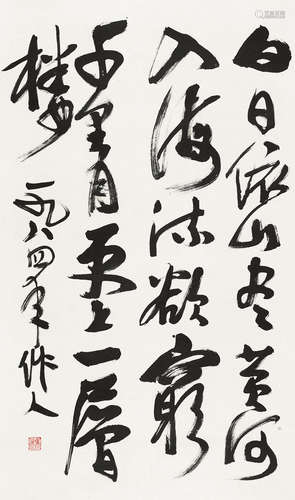 白日依山尽黄河
入海流欲穷
千里目更上一层
楼 一九八四年作人